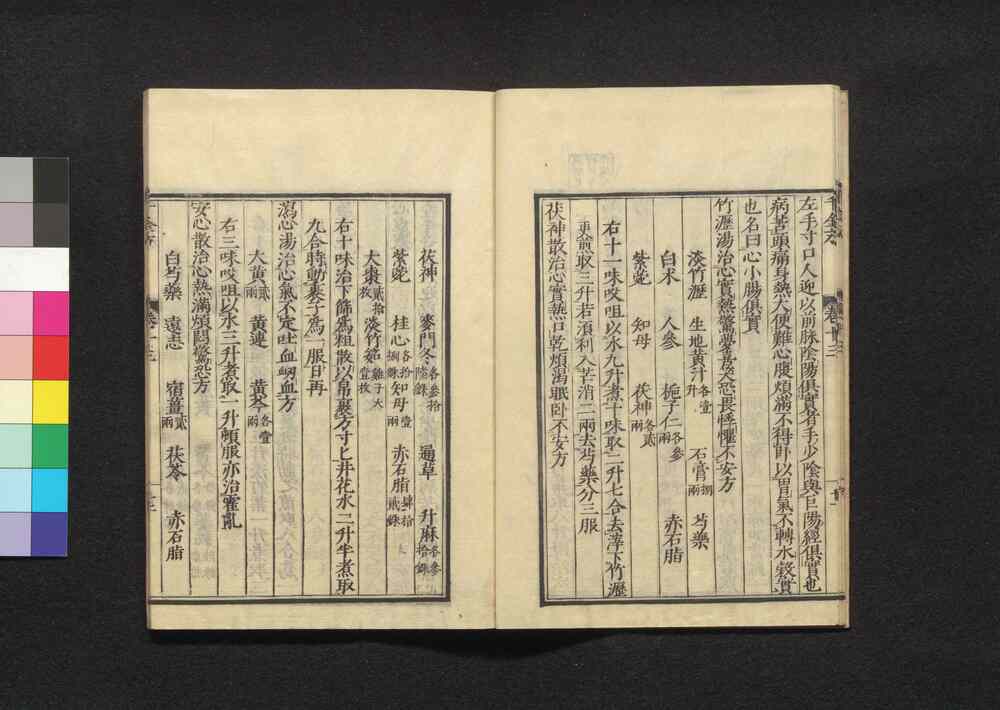 千金方 卷十三
左手寸口人迎以前脉陰陽俱實者手少陰與巨陽經俱實也
病苦頭痛身熱大便難心腹煩滿不得卧以胃氣不轉水穀實
也名曰心小腸俱實
竹瀝湯治心實熱驚夢喜笑恐畏悸懼不安方
淡竹瀝 生地黄汁各壹升 石膏捌兩 芍藥
白术 人參 梔子仁各參兩 赤石脂
紫菀 知母 茯神各貳兩
右十一味㕮咀以水九升煮十味取二升七合去滓下竹瀝
更煎取三升若須利入芒消二兩去芍藥分三服
茯神散治心實熱口乾煩渴眠卧不安方
茯神 麥門冬各參拾陸銖 通草 升麻各參拾銖
紫菀 桂心各拾捌銖 知母壹兩 赤石脂肆拾貳銖
大棗貳拾枚 淡竹茹雞子大壹枚
右十味治下篩爲粗散以帛裹方寸匕井花水二升半煮取
九合時動裹子爲一服日再
瀉心湯治心氣不定吐血衂血方
大黄貳兩 黄連 黄芩各壹兩
右三味㕮咀以水三升煮取一升頓服亦治霍亂
安心散治心熱滿煩悶驚恐方
白芍藥 遠志 宿薑貳兩 茯苓 赤石脂
千金方 卷十三